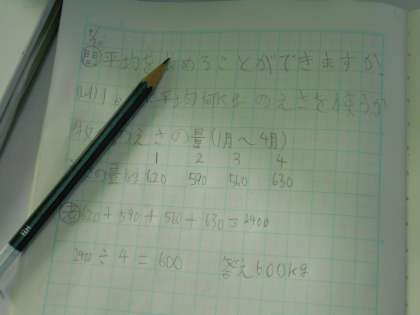 問 平均を求めることができますか
平均何kgのえさを使うか
えさの量(1月〜4月)
1 2 3 4
の量kg 620 590 560 630
620+590+560+630=2400
÷4=600 答え600kg